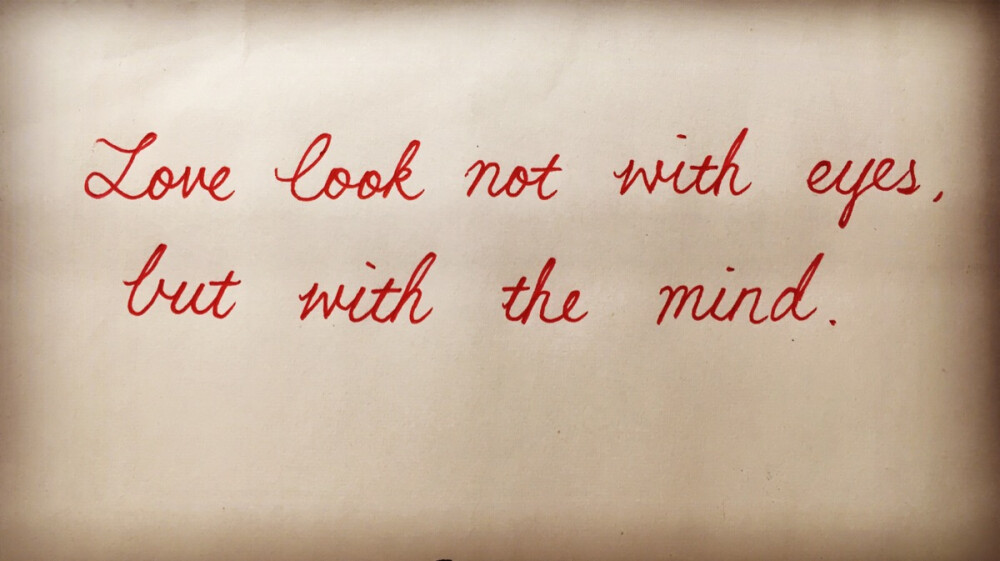 Love look not with eyes,
but with the mind.